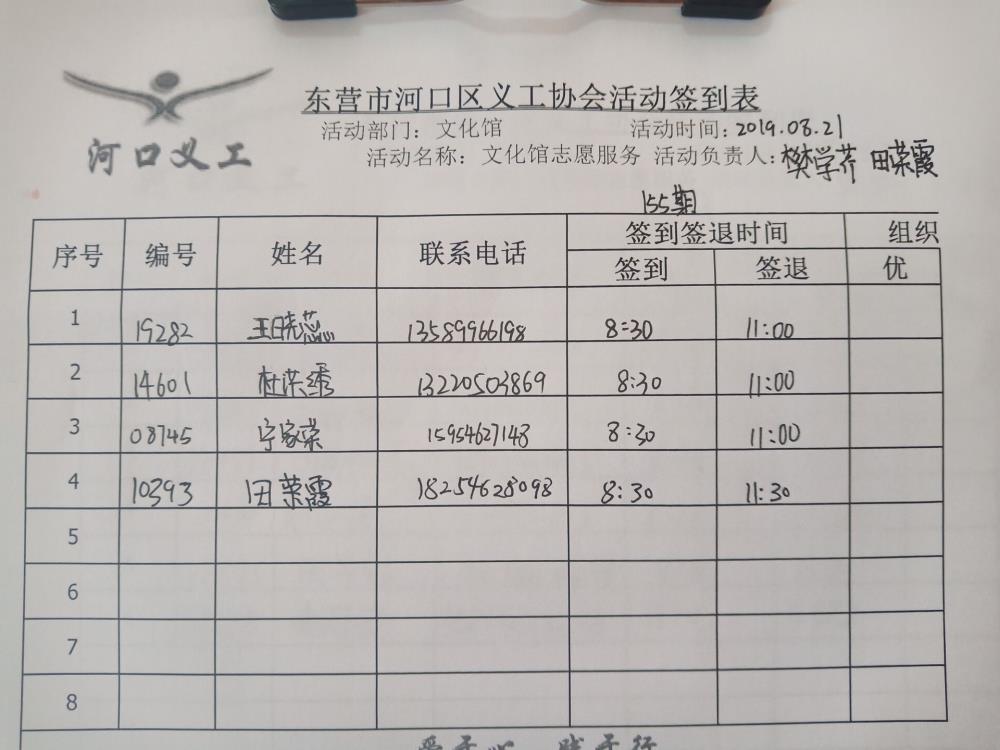 东营市河口区义工协会活动签到表
河口义工
活动部门：文化馆 活动时间：2019.08.21
活动名称：文化馆志愿服务 活动负责人：樊学芹 田荣霞
155期
序号 编号 姓名 联系电话 签到签退时间 组织
签到 签退 优
1 19282 王晓蕊 13589966198 8:30 11:00
2 14601 杜洪绣 13220503869 8:30 11:00
3 08745 宁家荣 15954627148 8:30 11:00
4 10393 田荣霞 18254628098 8:30 11:30
5
6
7
8